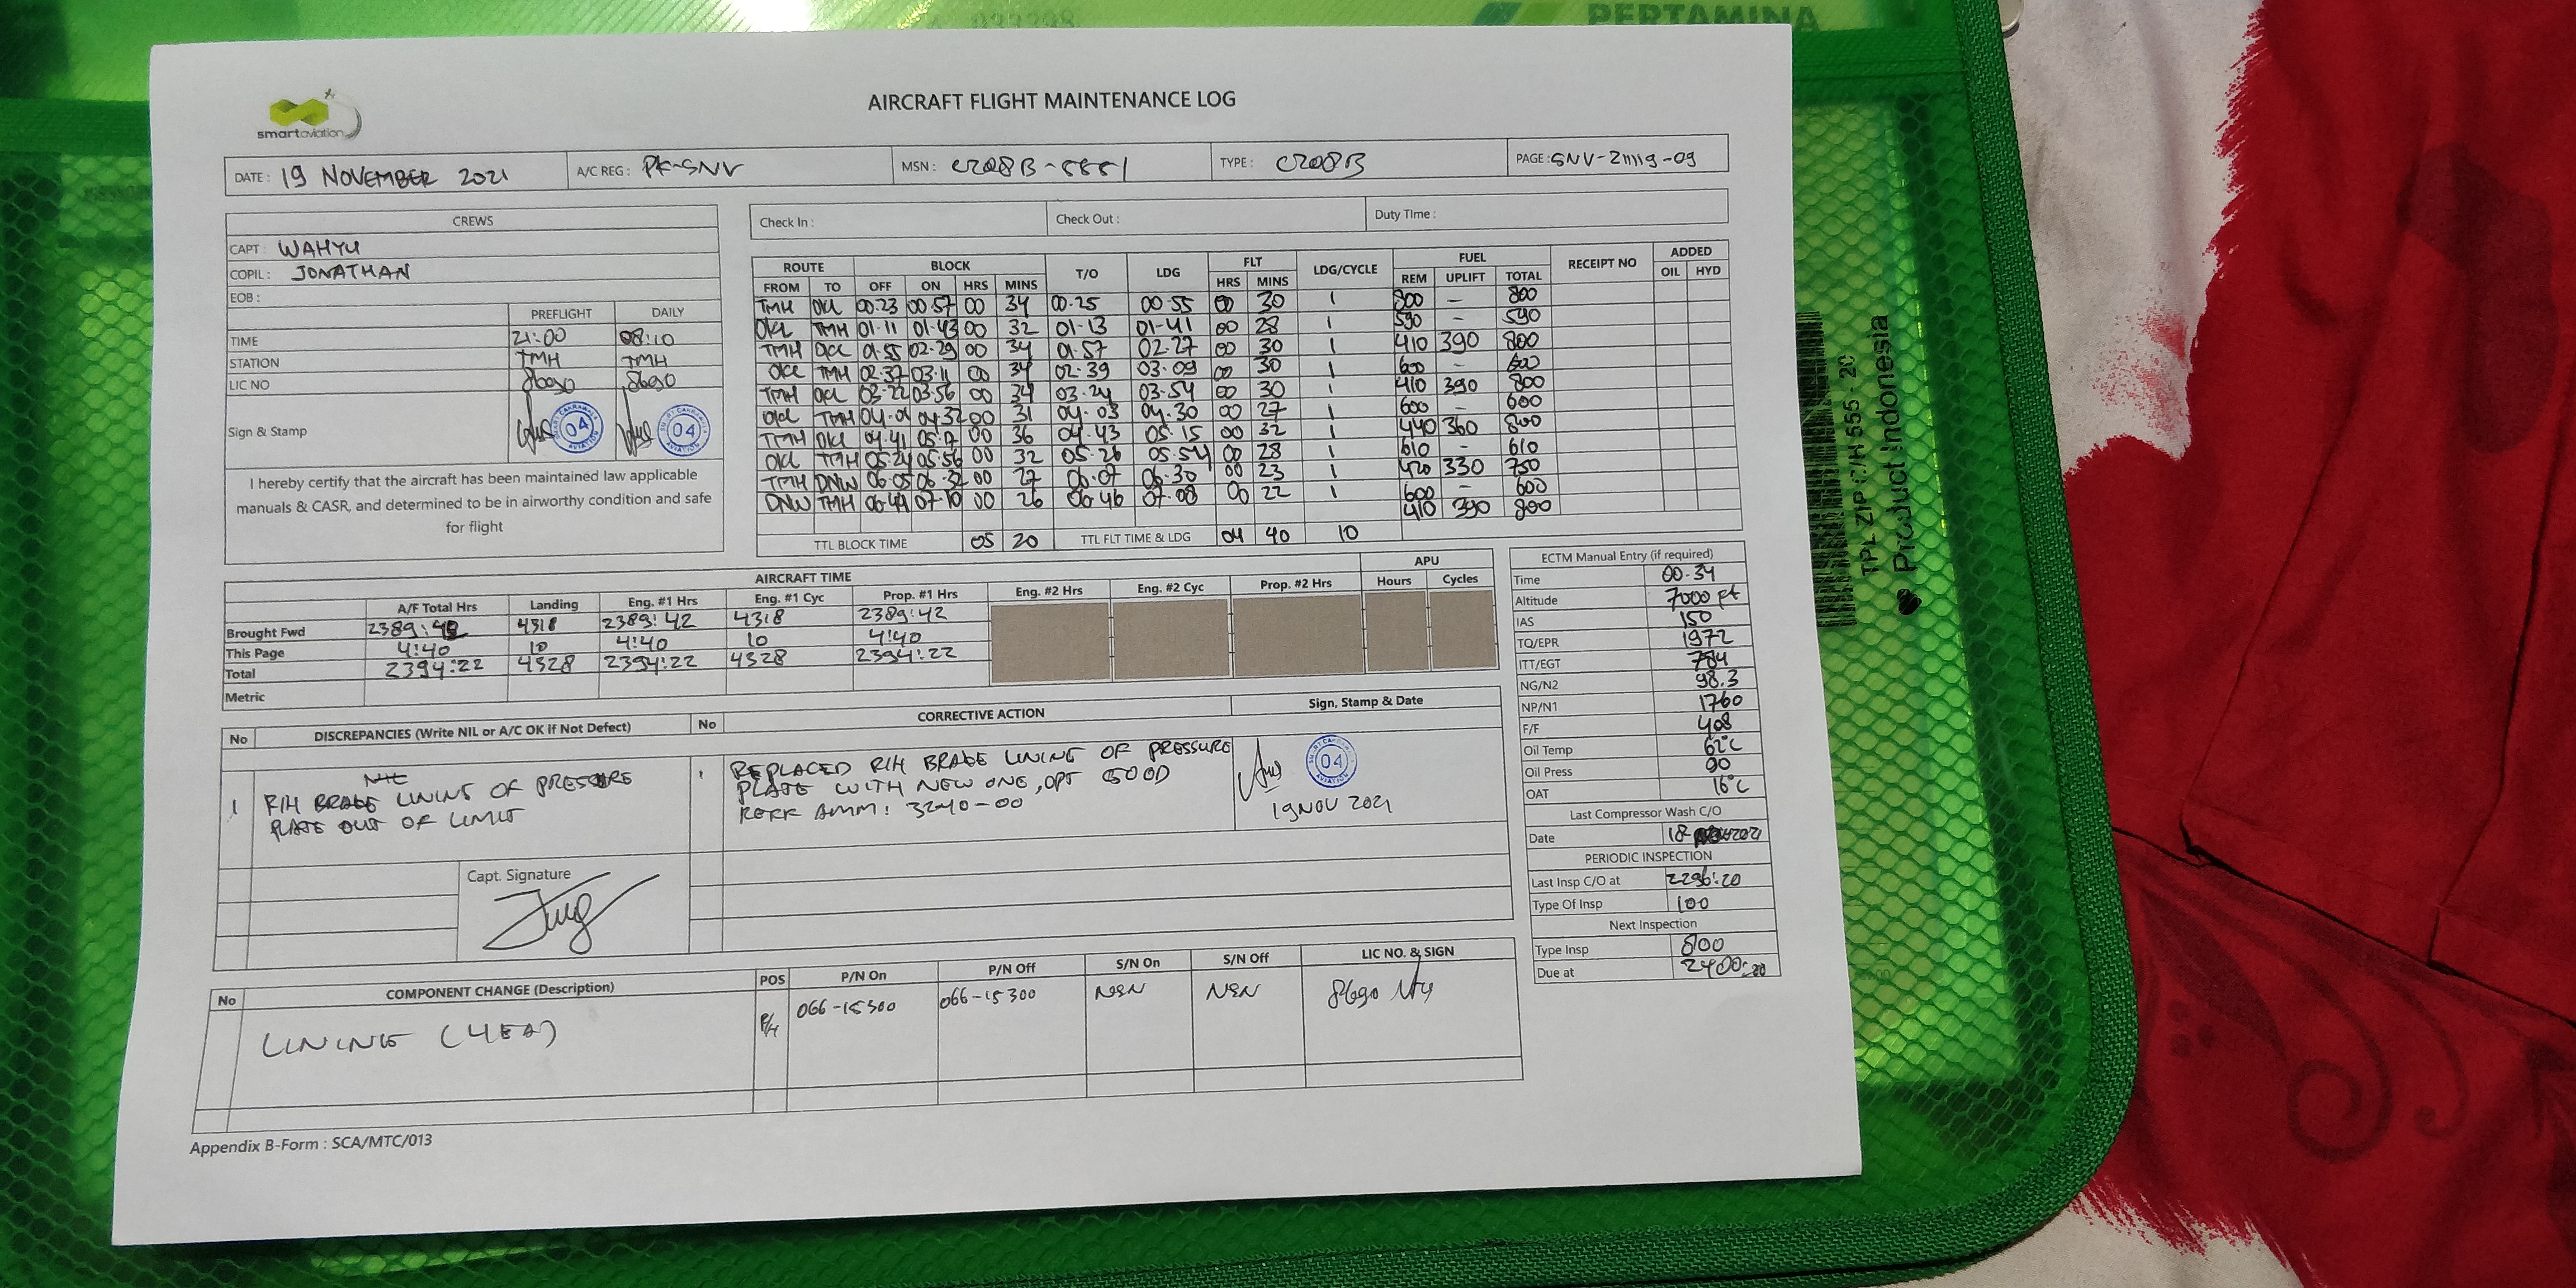 PERTAMINA
smartaviation
AIRCRAFT FLIGHT MAINTENANCE LOG
DATE : 19 NOVEMBER 2021 A/C REG : PK-SNV MSN : C208B-5551 TYPE : C208B PAGE : SNV-211119-09
CREWS
CAPT : WAHYU
COPIL : JONATHAN
EOB :
PREFLIGHT DAILY
TIME 21:00 08:10
STATION TMH TMH
LIC NO 8690 8690
Sign & Stamp 04 04
I hereby certify that the aircraft has been maintained law applicable
manuals & CASR, and determined to be in airworthy condition and safe
for flight
Check In : Check Out : Duty Time :
ROUTE BLOCK T/O LDG FLT LDG/CYCLE FUEL RECEIPT NO ADDED
FROM TO OFF ON HRS MINS HRS MINS REM UPLIFT TOTAL OIL HYD
TMH OKL 00.23 00.57 00 34 00.25 00.55 00 30 1 800 - 800
OKL TMH 01.11 01.43 00 32 01.13 01.41 00 28 1 590 - 590
TMH OKL 01.55 02.29 00 34 01.57 02.27 00 30 1 410 390 800
OKL TMH 02.37 03.11 00 34 02.39 03.09 00 30 1 600 - 600
TMH OKL 03.22 03.56 00 34 03.24 03.54 00 30 1 410 390 800
OKL TMH 04.01 04.32 00 31 04.03 04.30 00 27 1 600 - 600
TMH OKL 04.41 05.17 00 36 04.43 05.15 00 32 1 440 360 800
OKL TMH 05.24 05.56 00 32 05.26 05.54 00 28 1 610 - 610
TMH DNW 06.05 06.32 00 27 06.07 06.30 00 23 1 420 330 750
DNW TMH 06.44 07.10 00 26 06.46 07.08 00 22 1 600 - 600
410 390 800
TTL BLOCK TIME 05 20 TTL FLT TIME & LDG 04 40 10
AIRCRAFT TIME APU
A/F Total Hrs Landing Eng. #1 Hrs Eng. #1 Cyc Prop. #1 Hrs Eng. #2 Hrs Eng. #2 Cyc Prop. #2 Hrs Hours Cycles
Brought Fwd 2389:42 4318 2389:42 4318 2389:42
This Page 4:40 10 4:40 10 4:40
Total 2394:22 4328 2394:22 4328 2394:22
Metric
ECTM Manual Entry (if required)
Time 00.34
Altitude 7000 Ft
IAS 150
TQ/EPR 1972
ITT/EGT 784
NG/N2 98.3
NP/N1 1760
F/F 408
Oil Temp 62°C
Oil Press 90
OAT 16°C
Last Compressor Wash C/O
Date 18 2021
PERIODIC INSPECTION
Last Insp C/O at 2296:20
Type Of Insp 100
Next Inspection
Type Insp 800
Due at 2400:20
No DISCREPANCIES (Write NIL or A/C OK if Not Defect) No CORRECTIVE ACTION Sign, Stamp & Date
NIL
1 R/H BRAKE LINING OF PRESSURE
PLATE OUT OF LIMIT
1 REPLACED R/H BRAKE LINING OF PRESSURE
PLATE WITH NEW ONE, OPT GOOD
REFF AMM: 3240-00
04
19 NOV 2021
Capt. Signature
No COMPONENT CHANGE (Description) POS P/N On P/N Off S/N On S/N Off LIC NO. & SIGN
LINING (4EA) R/H 066-15300 066-15300 NSN NSN 8690
Appendix B-Form : SCA/MTC/013
TPL ZIP C/H 555 - 20
Product Indonesia